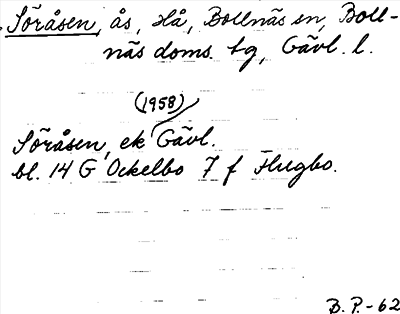 Söråsen, ås, Hå, Bollnäs sn, Boll-
näs doms. tg, Gävl. l.
(1958)
Söråsen, ek Gävl.
bl. 14 G Ockelbo 7 f Flugbo.
B. P. - 62